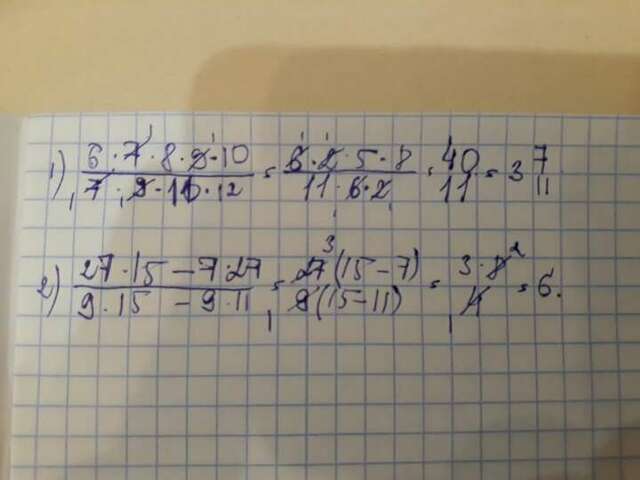 1) 6·7·8·9·10 / 7·9·11·12 = 6·2·5·8 / 11·6·2 = 40/11 = 3 7/11
2) 27·15 – 7·27 / 9·15 – 9·11 = 27(15–7) / 9(15–11) = 3·8 / 4 = 6.